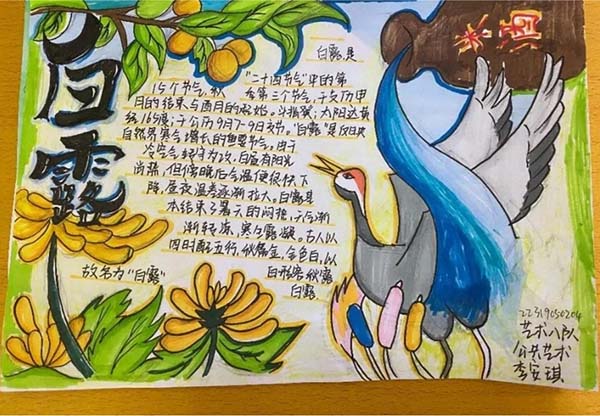 白露
米酒
白露，是
"二十四节气"中的第
15个节气，秋季第三个节气，于干支历申
月的结束与酉月的起始。斗指癸；太阳达黄
经165度；于公历9月7-9日交节。"白露"是反映
自然界寒气增长的重要节气。由于
冷空气转守为攻，白昼有阳光
尚热，但傍晚后气温便很快下
降，昼夜温差逐渐拉大。白露基
本结束了暑天的闷热，天气渐
渐转凉，寒生露凝。古人以
四时配五行，秋属金，金色白，以
白形容秋露
故名为"白露"
白露
22319050204
艺术八队
公共艺术
李安琪